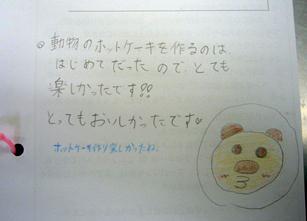 ◎動物のホットケーキを作るのは、
はじめてだったので、とても
楽しかったです!!
とってもおいしかったです♡
ホットケーキ作り楽しかったね。